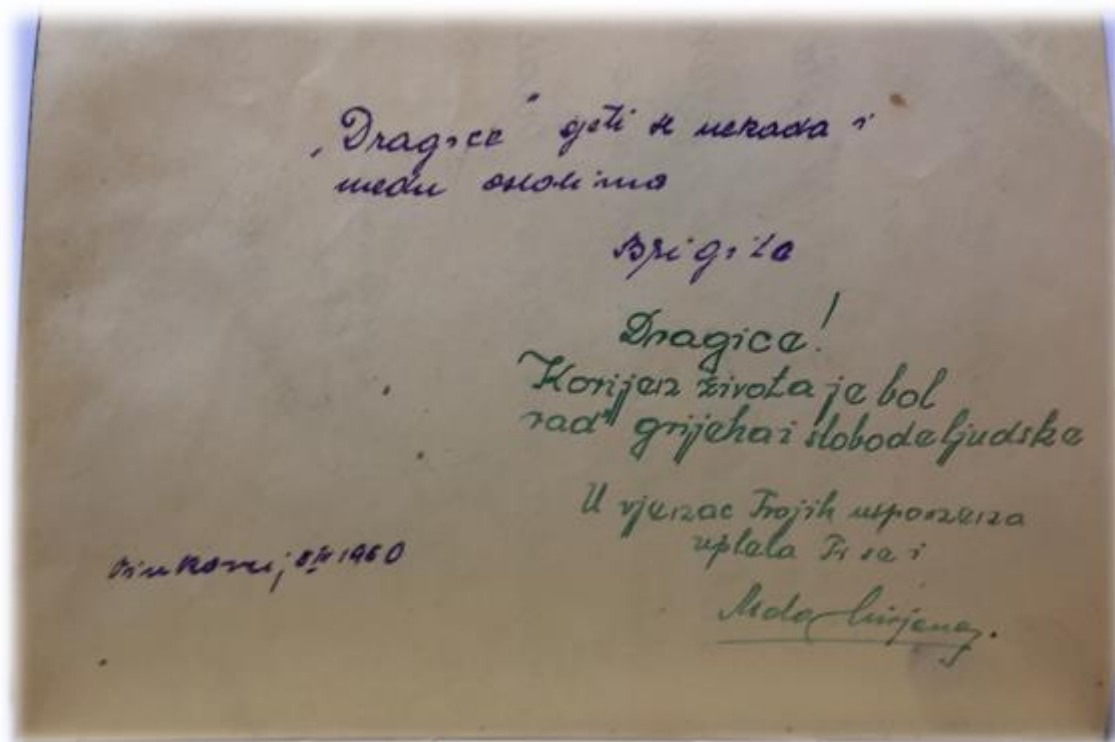 „Dragice" sjeti se nekada i
među ostalima
Brigita
Dragice!
Korijen života je bol
rad grijeha i slobode ljudske
U vjenac Tvojih uspomena
uplela Ti se i
Vinkovci, 1960